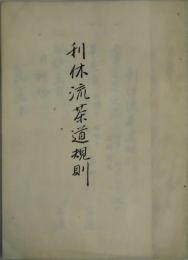 利休流茶道規則